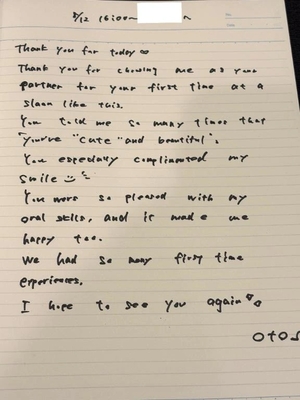 5/12 16:00~
Thank you for today
Thank you for choosing me as your
partner for your first time at a
slaon like this.
You told me so many times that
"you're "cute" and beautiful".
You especially complimented my
smile
You were so pleased with my
oral skills, and it made me
happy too.
We had so many first time
experiences.
I hope to see you again